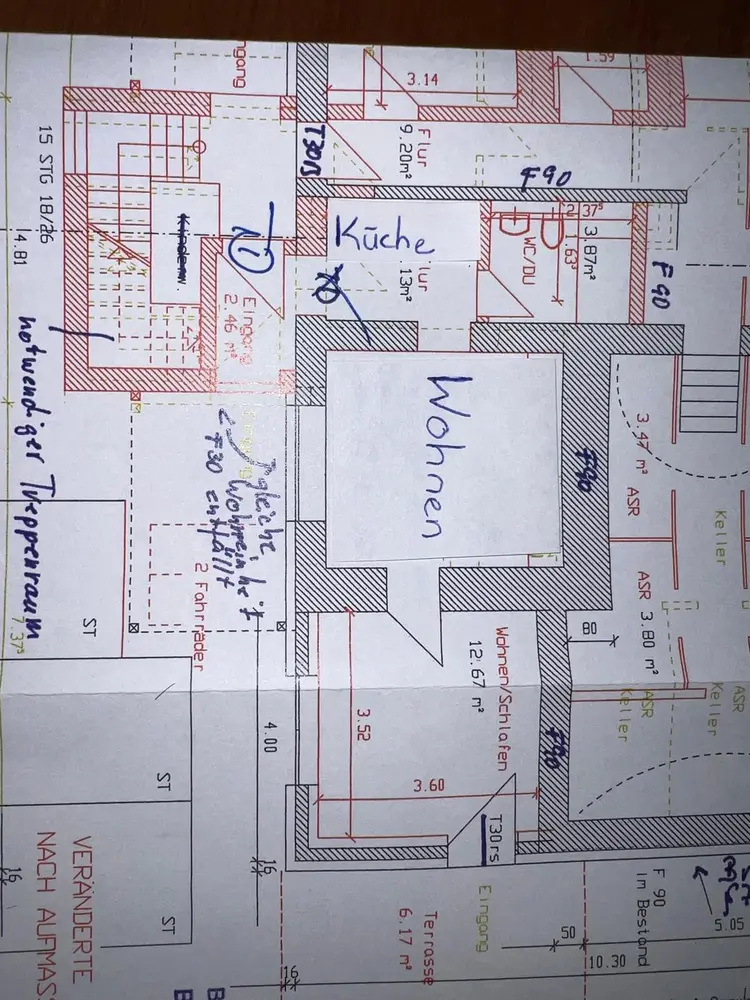 3.14
1.59
Flur
9.20m²
T30rs
F90
15 STG 18/26
4.81
Küche
lur
13m²
WC/DU
3.87m²
2.37⁵
.63⁵
F90
Eingang
2.46 m²
Wohnen
F90
3.47 m²
ASR
Keller
ASR 3.80 m²
ASR
Keller
ASR
Keller
notwendiger Treppenraum
gleiche
Wohneinheit
F30 entfällt
2 Fahrräder
7.37⁵
ST
ST
ST
4.00
16
80
Wohnen/Schlafen
12.67 m²
3.52
3.60
F90
T30rs
Eingang
Terrasse
6.17 m²
F 90
im Bestand
5.05
50
10.30
16
16
VERÄNDERTE
NACH AUFMASS